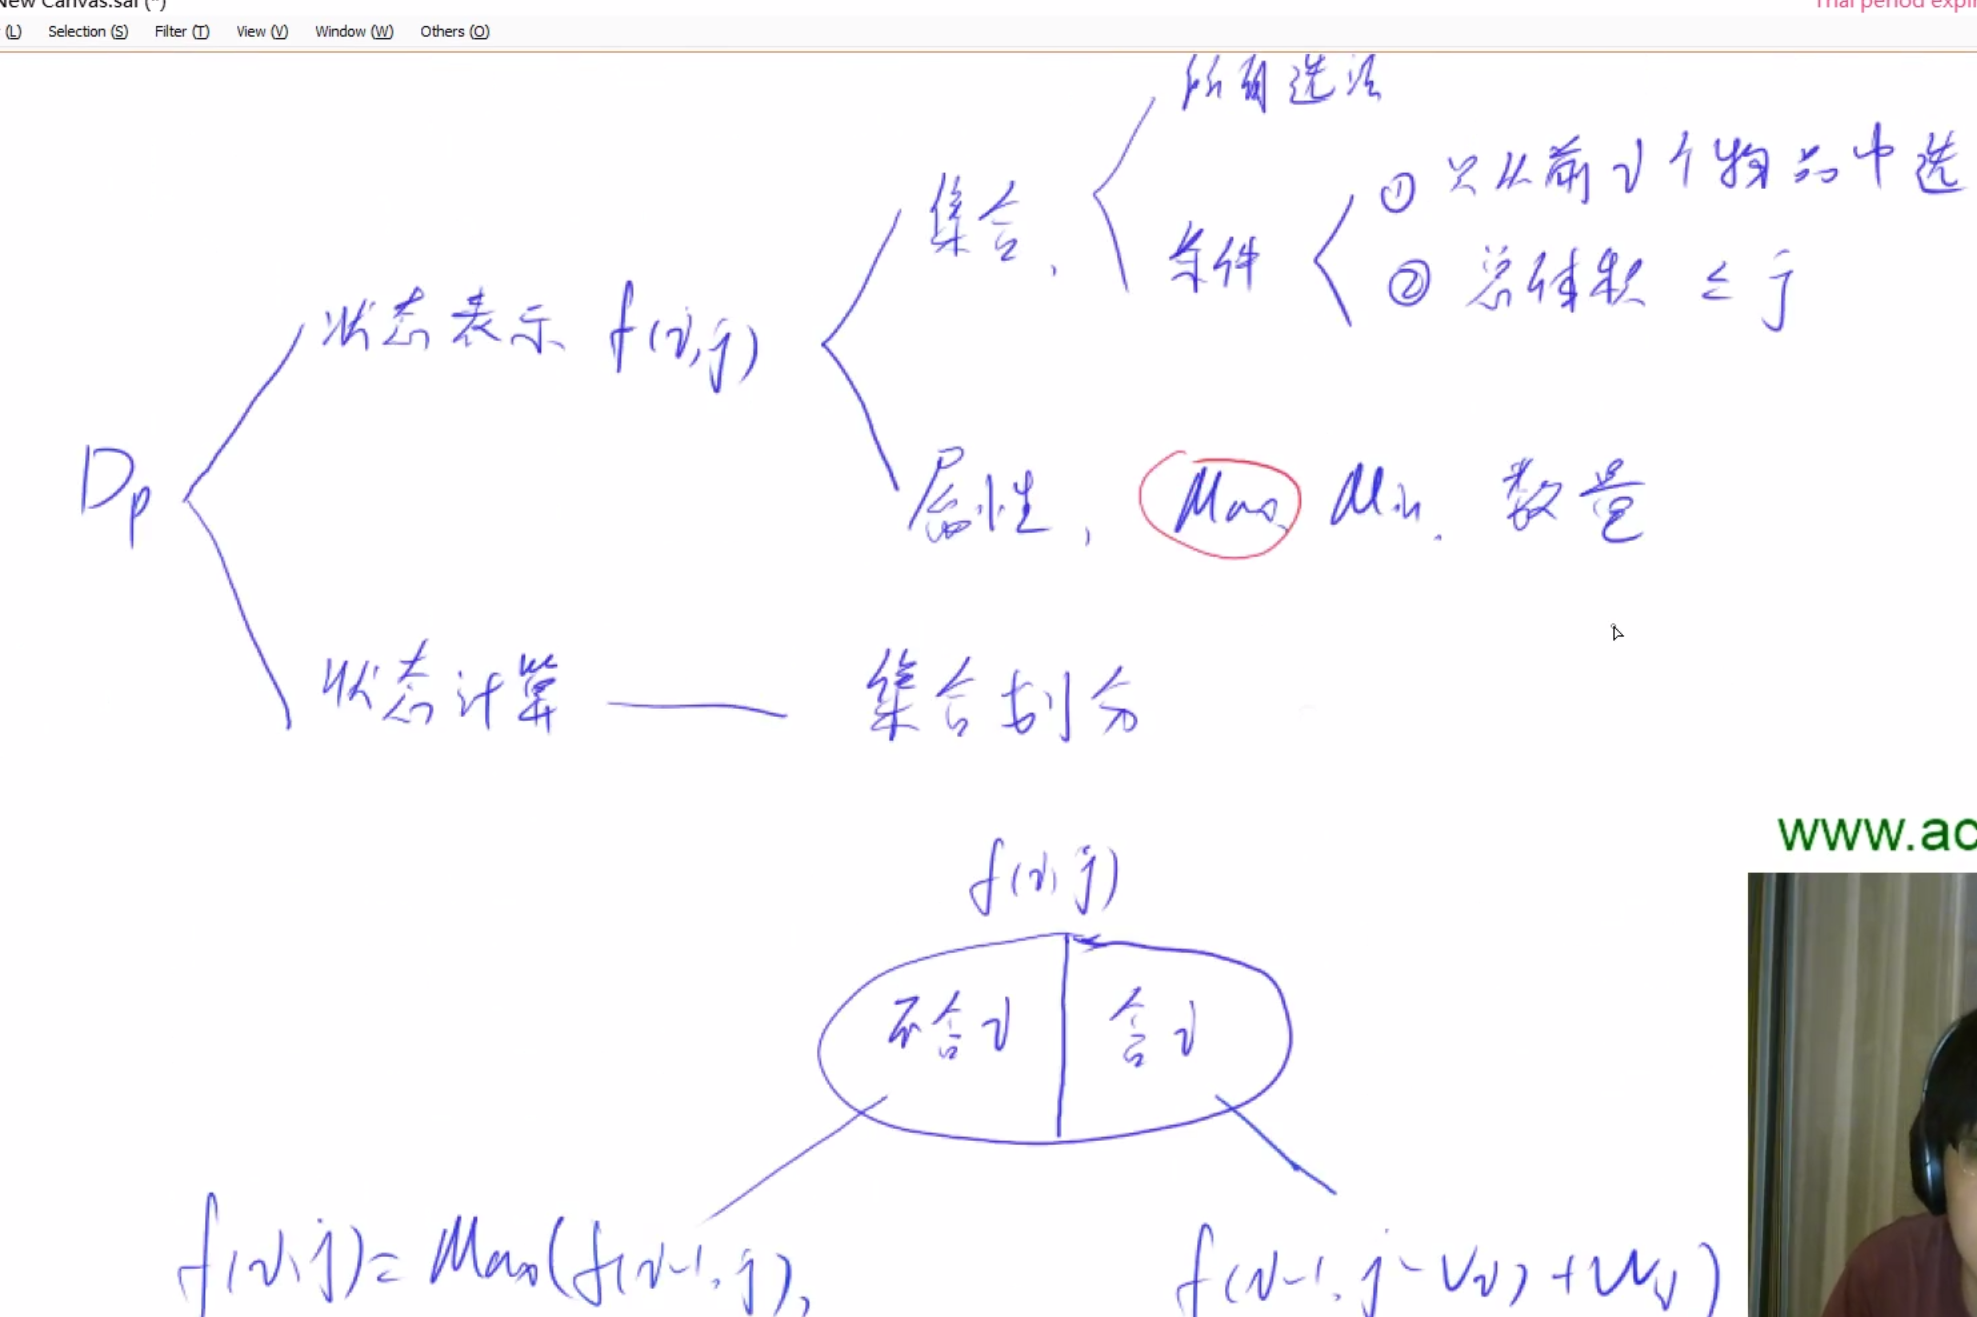 New Canvas.sai (*)
Trial period expir
(L) Selection (S) Filter (T) View (V) Window (W) Others (O)
所有选法
集合,
条件
① 只从前i个物品中选
② 总体积 ≤ j
状态表示 f(i,j)
Dp
属性, Max Min. 数量
状态计算 —— 集合划分
www.ac
f(i,j)
不含i 含i
f(i,j)= Max(f(i-1,j), f(i-1,j-Vi)+Wi)